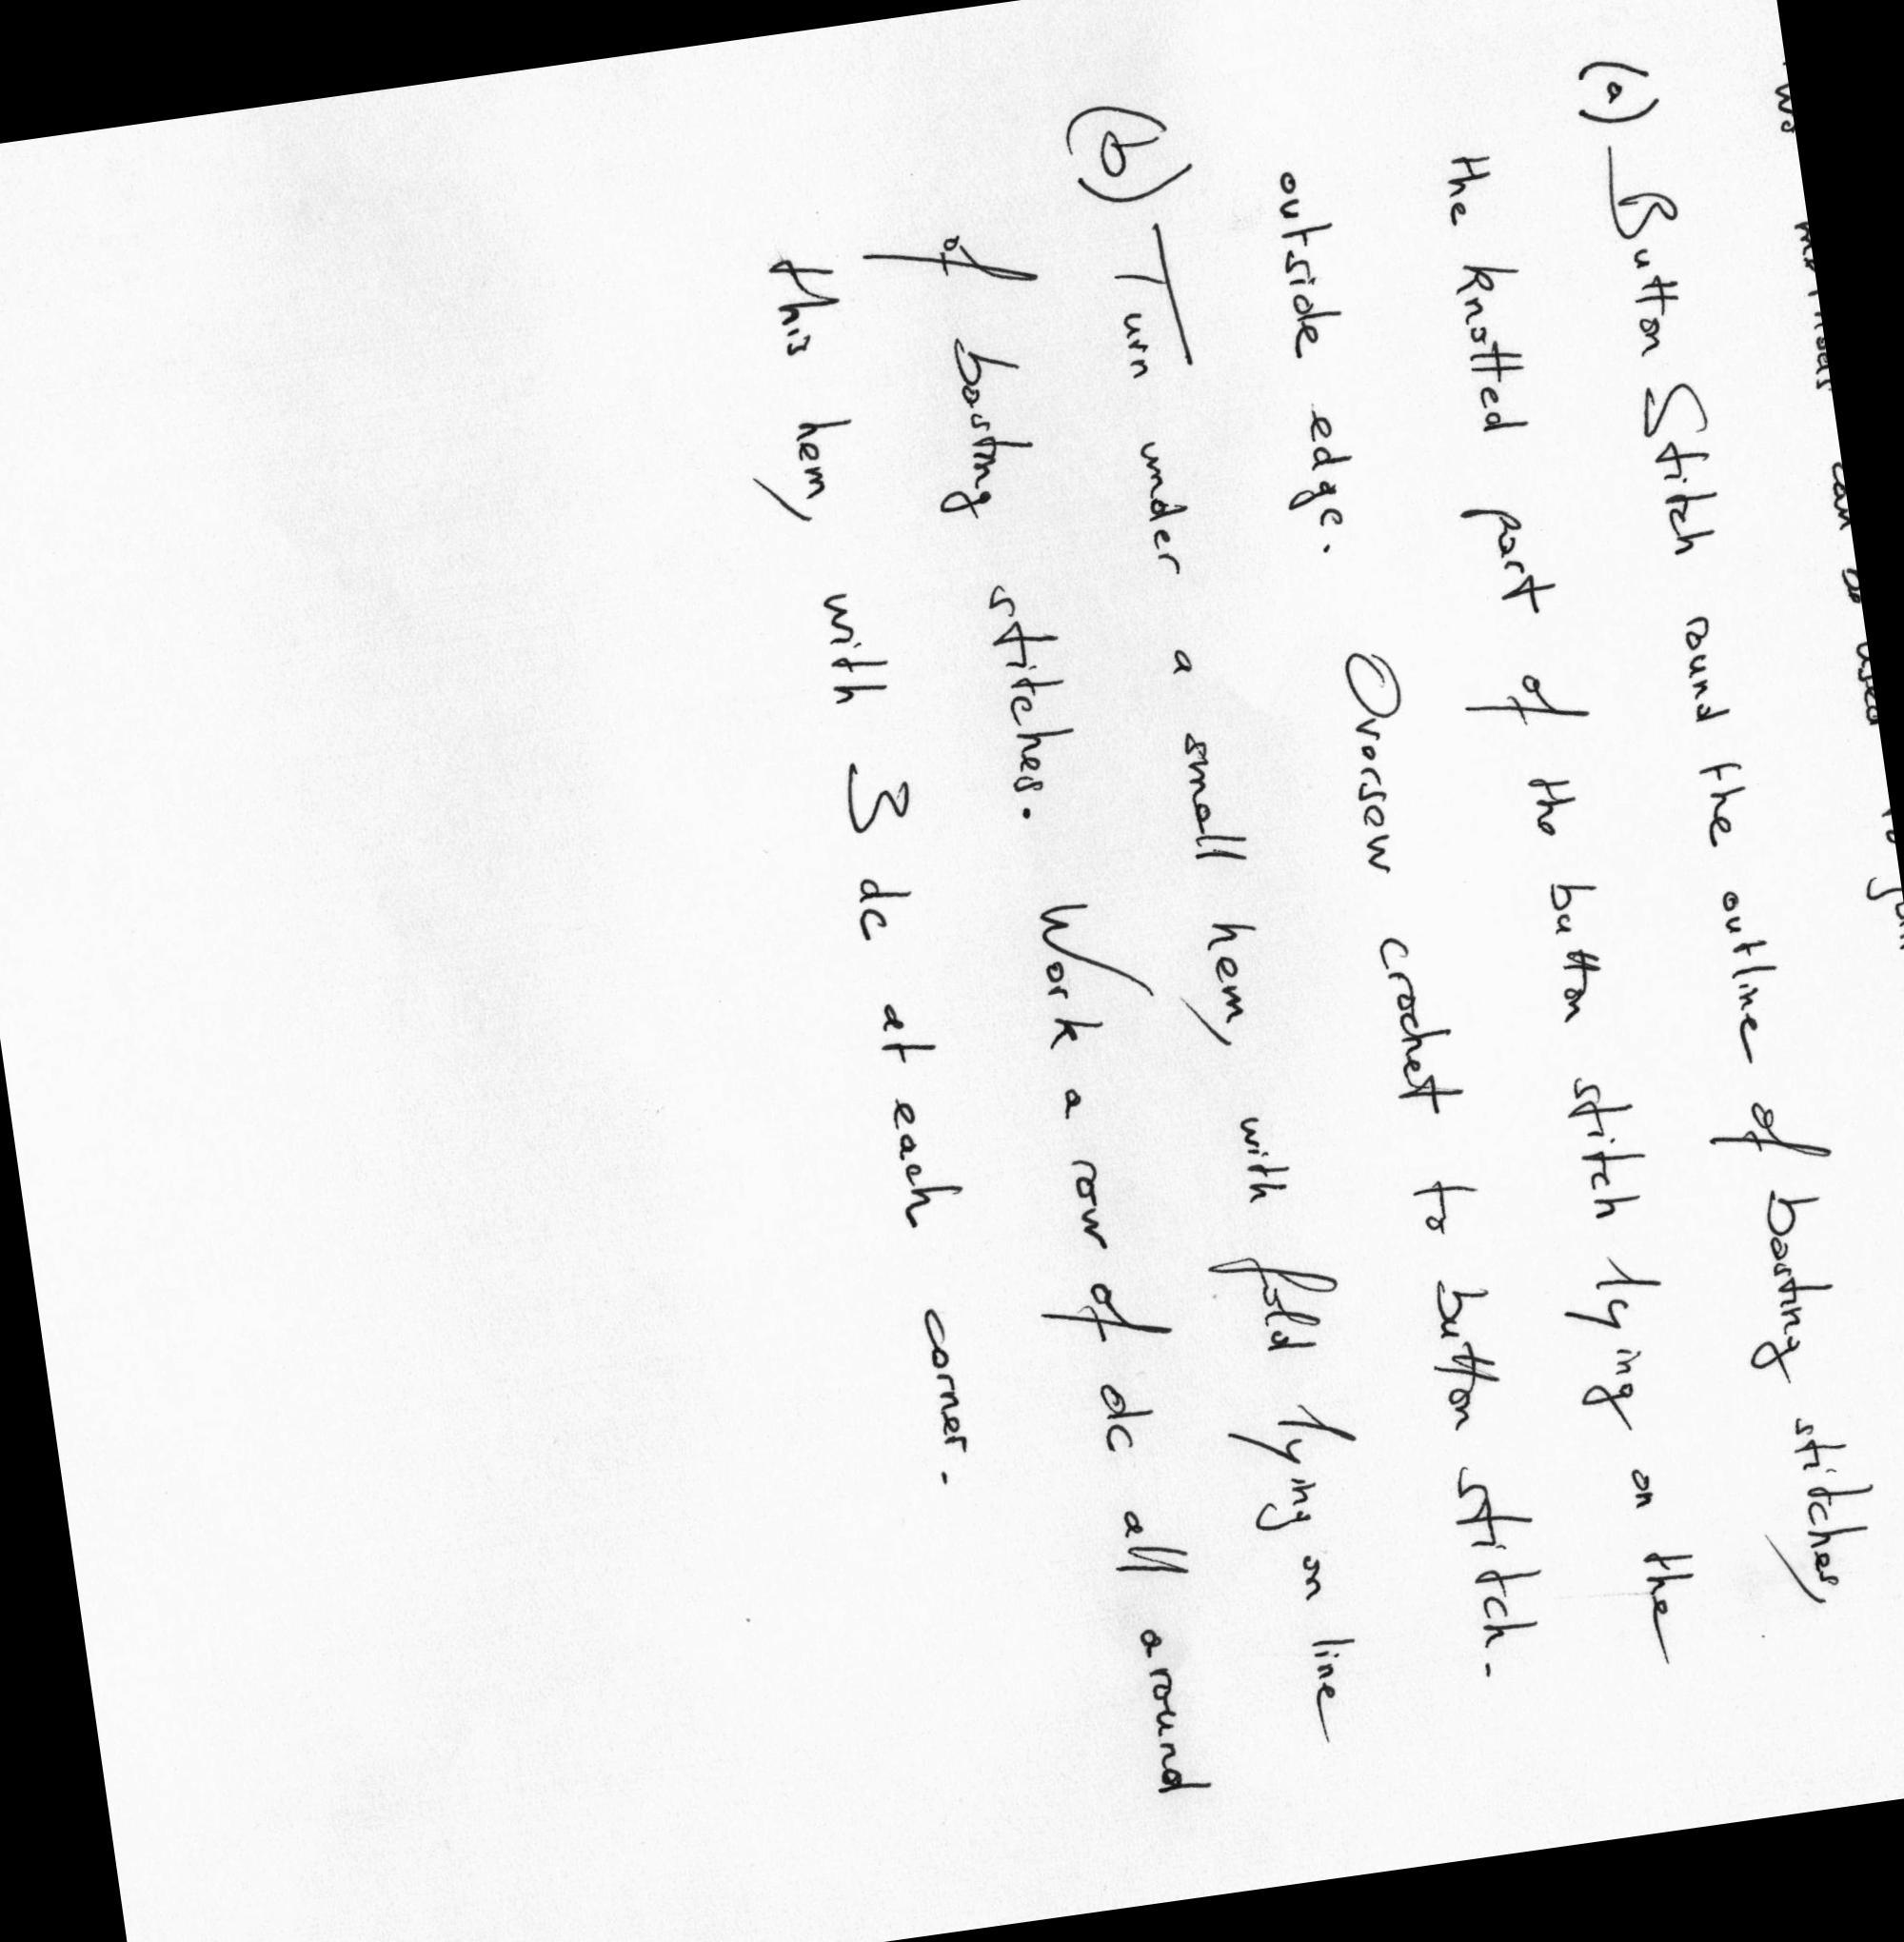 (a) Button Stitch round the outline of basting stitches,
the knotted part of the button stitch lying on the
outside edge. Oversew crochet to button stitch.
(b) Turn under a small hem, with fold lying on line
of basting stitches. Work a row of dc all around
this hem, with 3 dc at each corner.